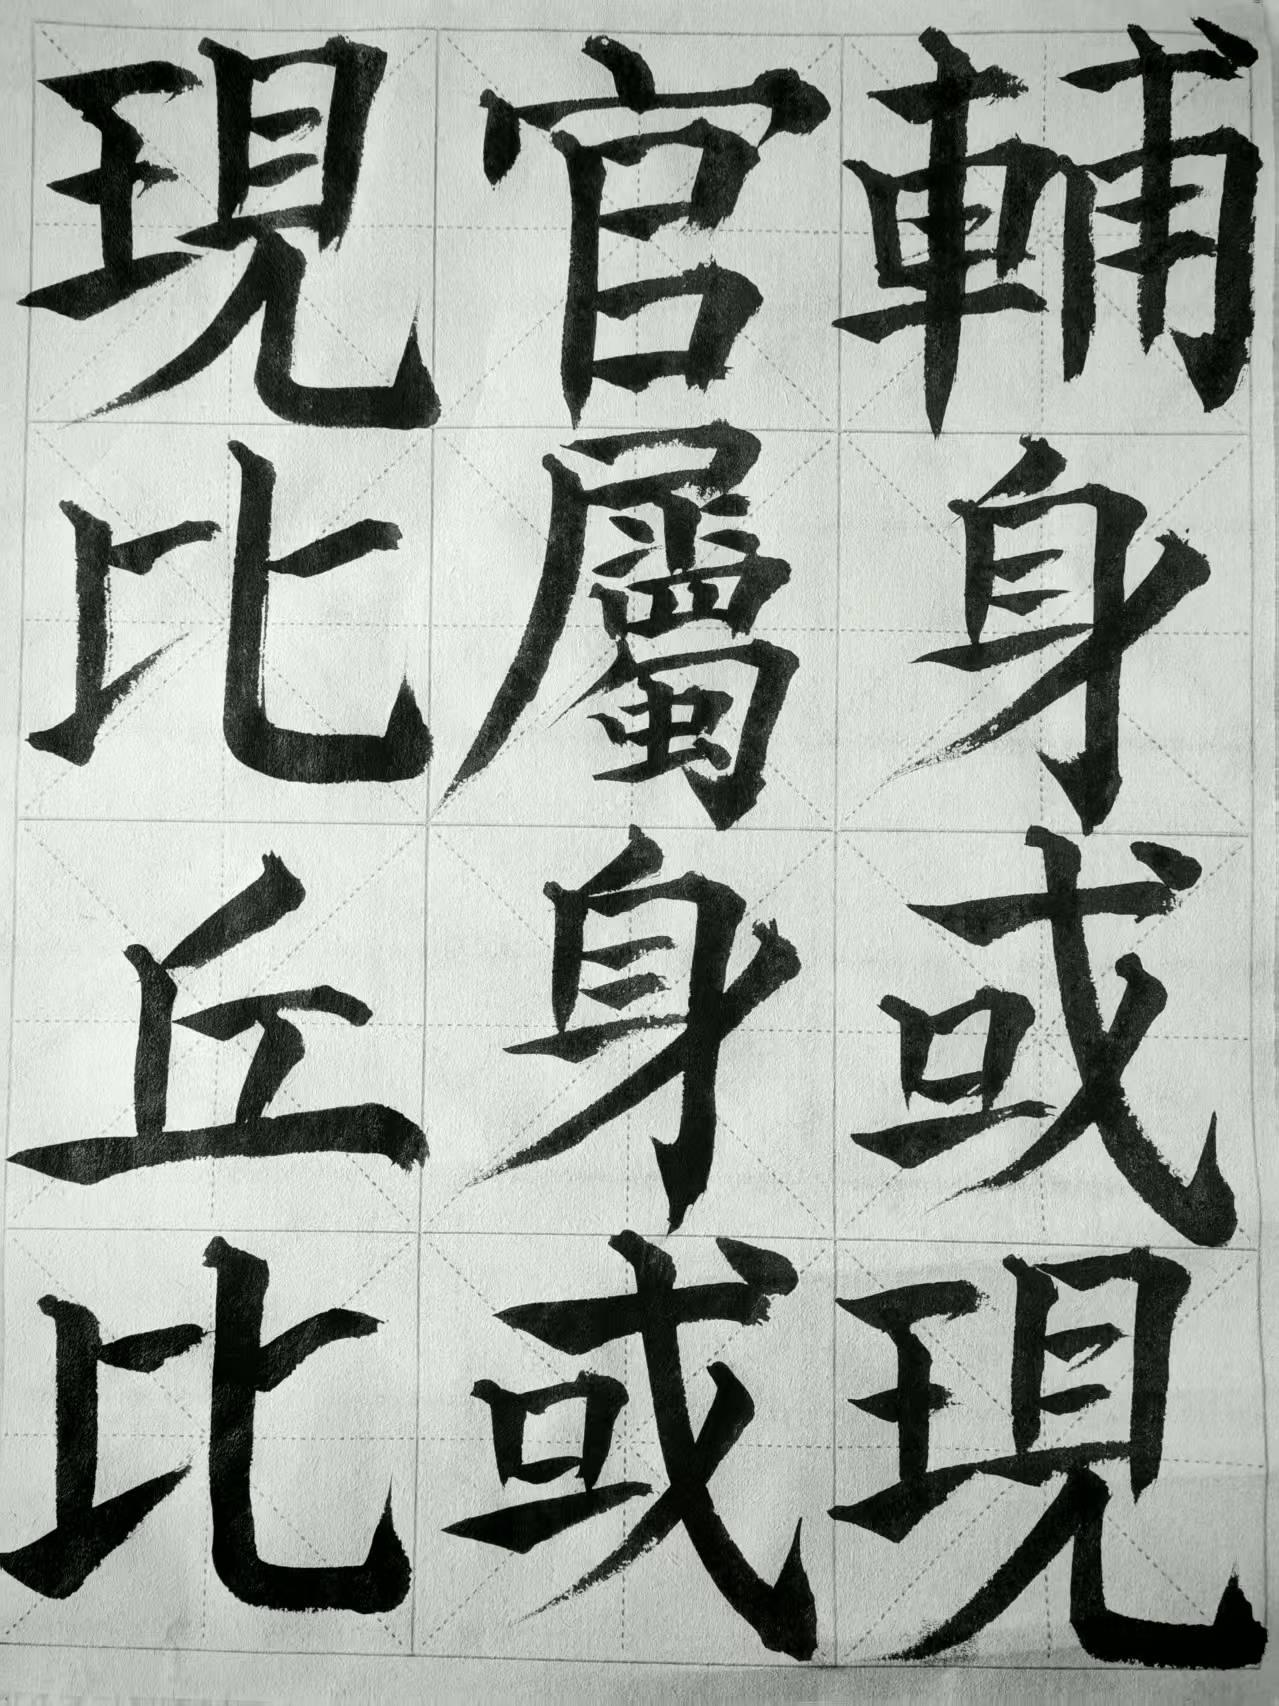 輔身或現
官屬身或
現比丘比